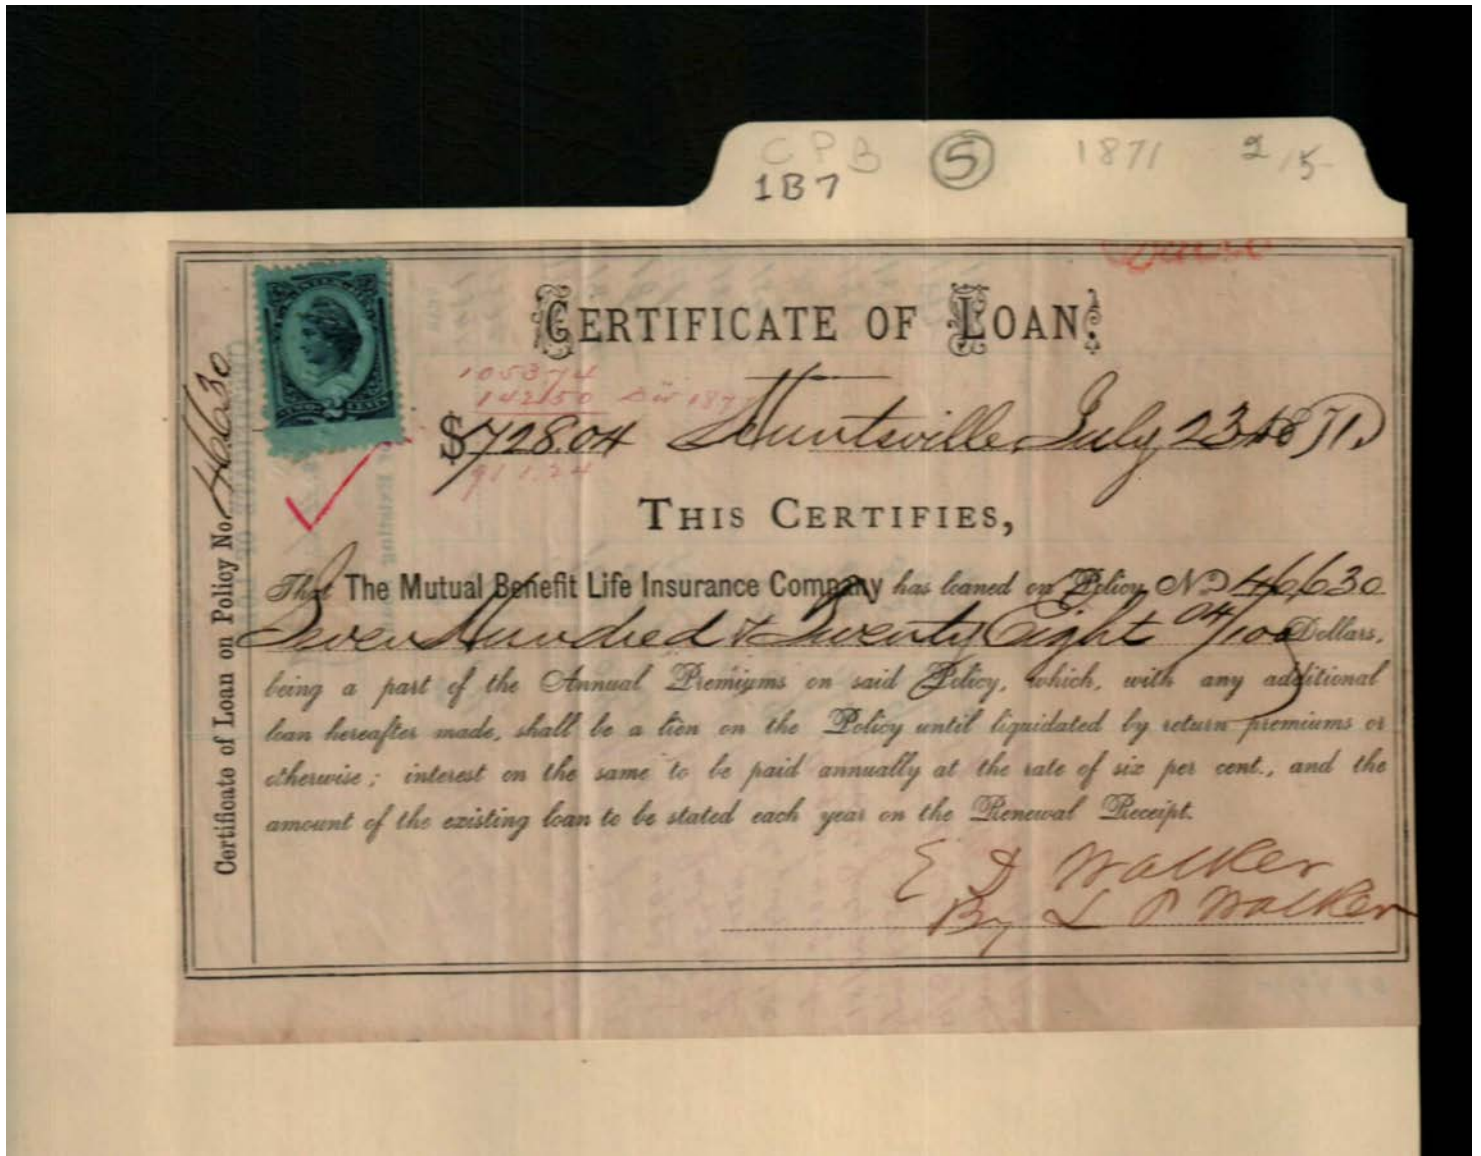 CPB (5) 1871 2/5
1B7
CERTIFICATE OF LOAN.
1053 74
142 50 Div 187
$728.04 Huntsville, July 23rd 1871.
911.24
THIS CERTIFIES,
That The Mutual Benefit Life Insurance Company has loaned on Policy No 46630
Seven Hundred & Twenty Eight 04/100 Dollars,
being a part of the Annual Premiums on said Policy, which, with any additional
loan hereafter made, shall be a lien on the Policy until liquidated by return premiums or
otherwise; interest on the same to be paid annually at the rate of six per cent., and the
amount of the existing loan to be stated each year on the Renewal Receipt.
E D Walker
By L P Walker
Certificate of Loan on Policy No. 46630
TWO 2 CENTS